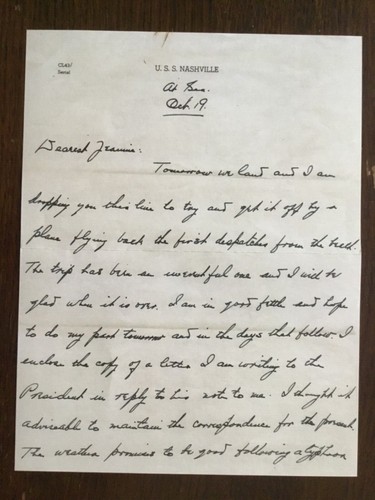 CL43/
Serial
U. S. S. NASHVILLE
At Sea.
Oct 19.
Dearest Jeannie:
Tomorrow we land and I am
dropping you this line to try and get it off by a
plane flying back the first despatches from the
The trip has been an uneventful one and I will be
glad when it is over. I am in good fettle and hope
to do my part tomorrow and in the days that follow. I
enclose the copy of a letter I am writing to the
President in reply to his note to me. I thought it
advisable to maintain the correspondence for the present.
The weather promises to be good following a typhoon